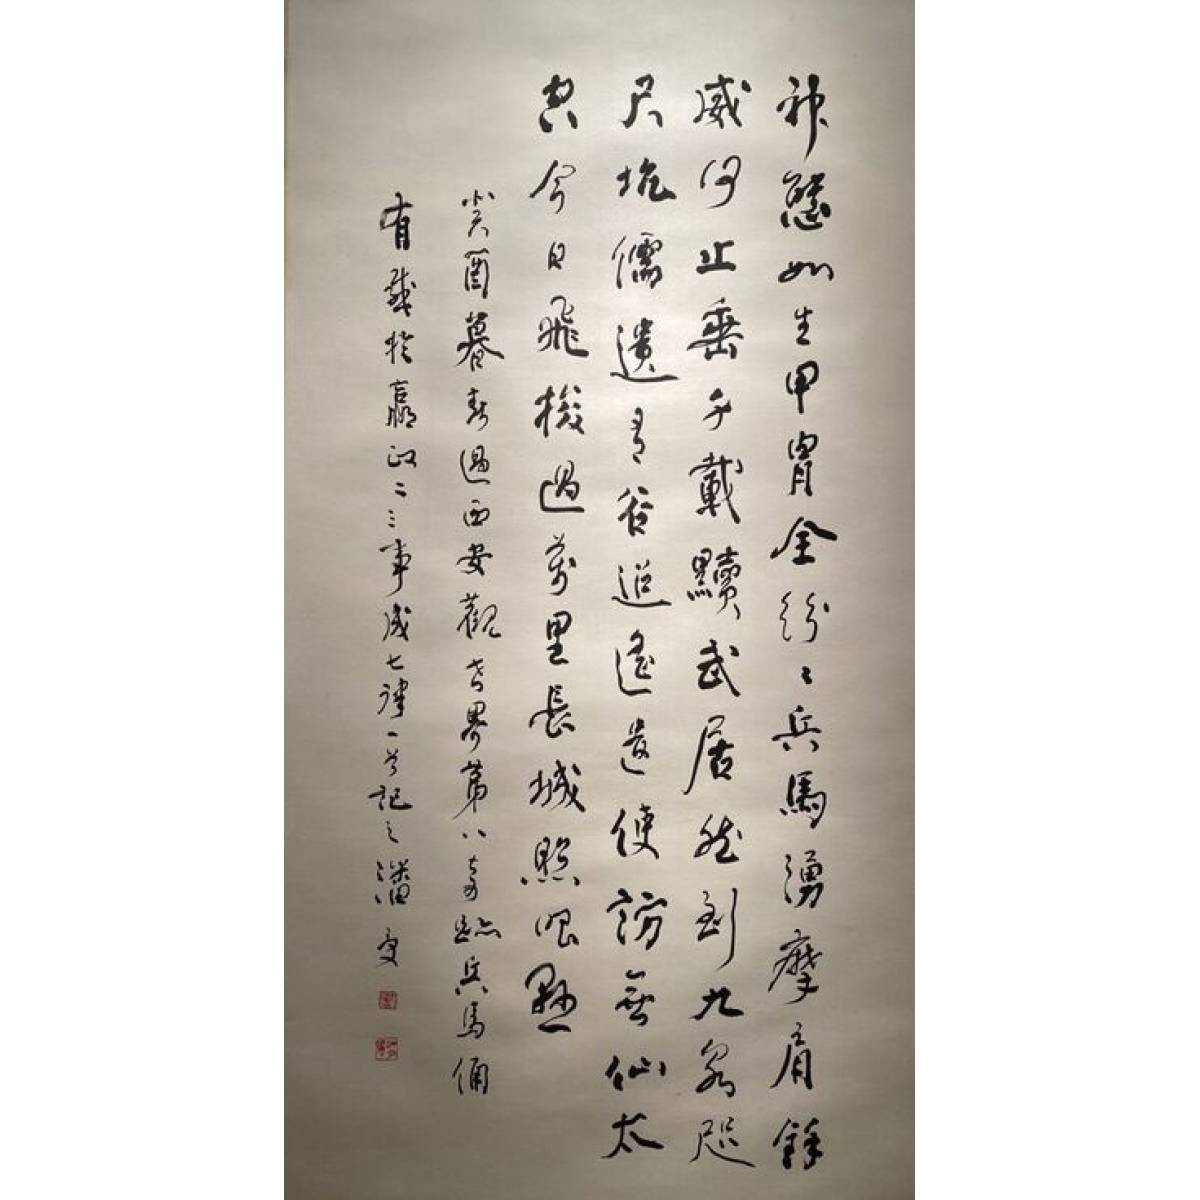 神態如生甲冑全紛〻兵馬湧摩肩餘
威何止垂千載黷武居然到九泉咫
尺坑儒遺有谷迢遙遣使訪無仙太
空今日飛梭過萬里長城照眼懸
癸酉暮春過西安觀世界第八奇跡兵馬俑
有感於嬴政二三事成七律一首記之潘受